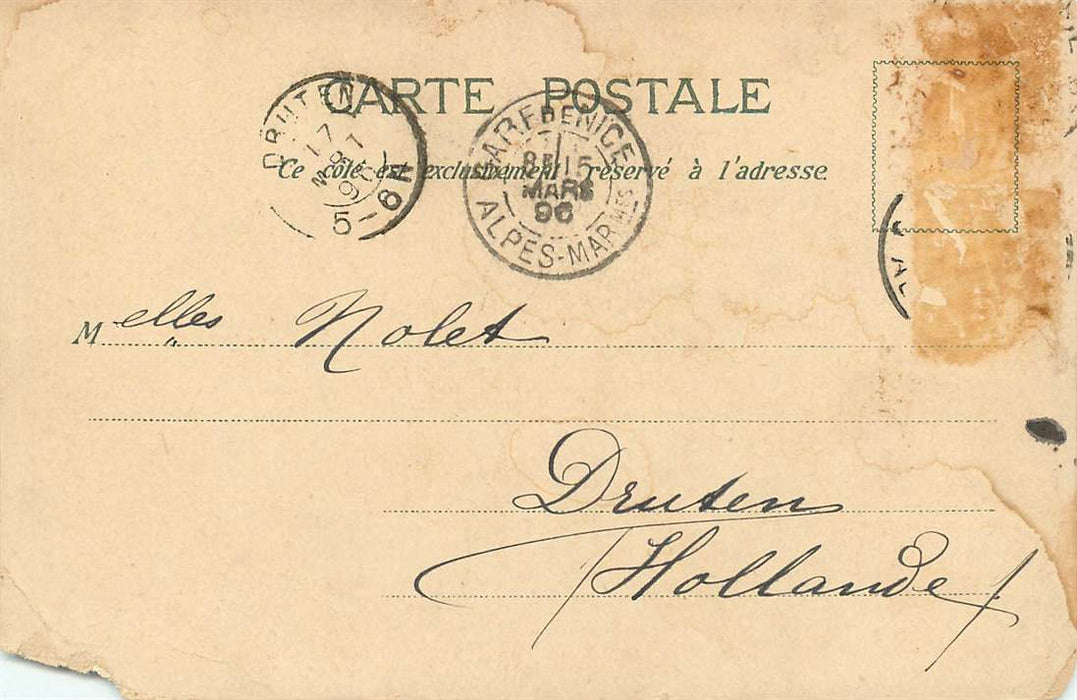 CARTE POSTALE
Ce côté est exclusivement réservé à l'adresse
DRUTEN
17
MRT
96
5-6N
GARE DE NICE
15
MARS
96
ALPES-MARMES
Melles Nolet
Druten
Hollande